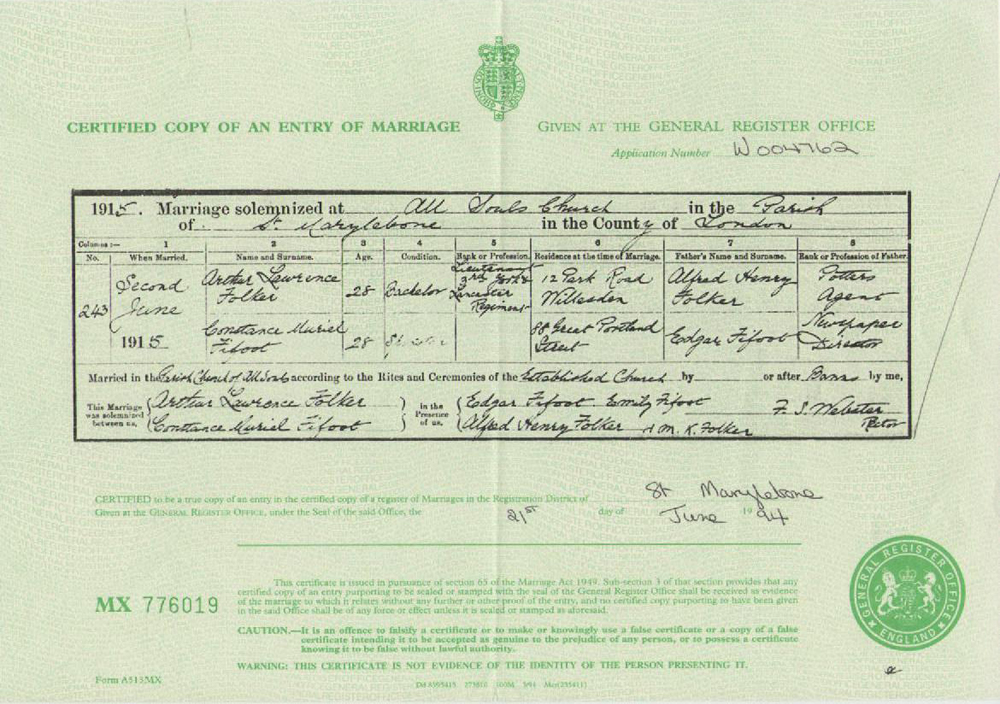 CERTIFIED COPY OF AN ENTRY OF MARRIAGE
GIVEN AT THE GENERAL REGISTER OFFICE
Application Number W004762
1915. Marriage solemnized at All Souls Church in the Parish
of St. Marylebone in the County of London
Columns :— 1 2 3 4 5 6 7 8
No. When Married. Name and Surname. Age. Condition. Rank or Profession. Residence at the time of Marriage. Father's Name and Surname. Rank or Profession of Father.
243 Second June 1915
Arthur Lawrence Folker 28 Bachelor Lieutenant 3rd York & Lancaster Regiment 12 Park Road Willesden Alfred Henry Folker Potters Agent
Constance Muriel Fifoot 28 Spinster 88 Great Portland Street Edgar Fifoot Newspaper Director
Married in the Parish Church of All Souls according to the Rites and Ceremonies of the Established Church by or after Banns by me,
This Marriage was solemnized between us, Arthur Lawrence Folker Constance Muriel Fifoot
in the Presence of us, Edgar Fifoot Emily Fifoot Alfred Henry Folker M. K. Folker
F. S. Webster Rector
CERTIFIED to be a true copy of an entry in the certified copy of a register of Marriages in the Registration District of St Marylebone
Given at the GENERAL REGISTER OFFICE, under the Seal of the said Office, the 21st day of June 1994
MX 776019
This certificate is issued in pursuance of section 65 of the Marriage Act 1949. Sub-section 3 of that section provides that any
certified copy of an entry purporting to be sealed or stamped with the seal of the General Register Office shall be received as evidence
of the marriage to which it relates without any further or other proof of the entry, and no certified copy purporting to have been given
in the said Office shall be of any force or effect unless it is sealed or stamped as aforesaid.
CAUTION.—It is an offence to falsify a certificate or to make or knowingly use a false certificate or a copy of a false
certificate intending it to be accepted as genuine to the prejudice of any person, or to possess a certificate
knowing it to be false without lawful authority.
WARNING: THIS CERTIFICATE IS NOT EVIDENCE OF THE IDENTITY OF THE PERSON PRESENTING IT.
GENERAL REGISTER OFFICE
ENGLAND
Form A513MX